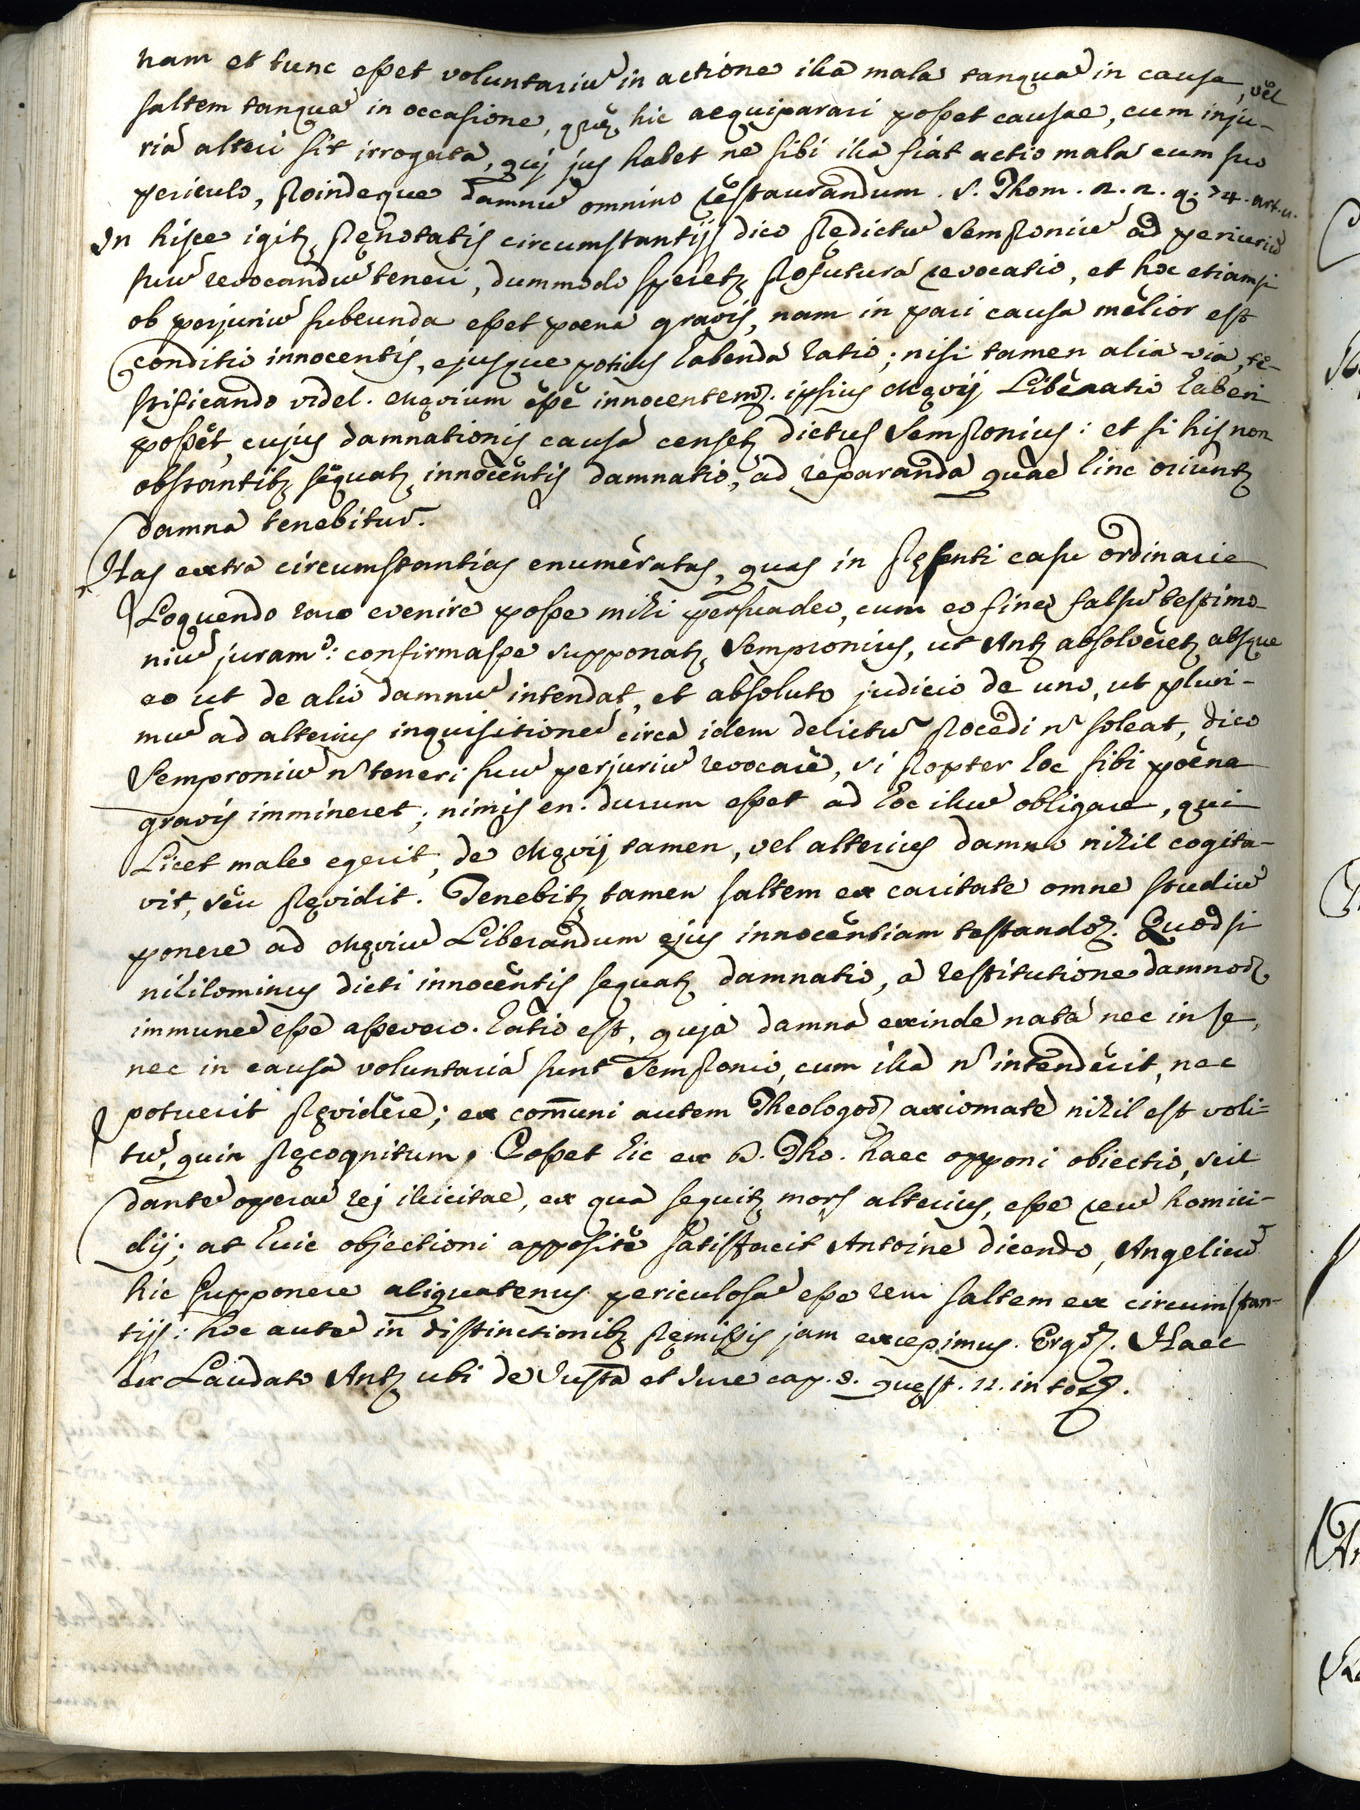 nam et tunc esset voluntariũ in actione illa mala tanquã in causa, vel
saltem tanquã in occasione, quę hic aequiparari posset causae, cum inju-
ria alteri sit irrogata, qui jus habet ne sibi illa fiat actio mala cum suo
periculo, proindeque damnũ omnino restaurandum. S. Thom. 2. 2. q. 74. art. 2.
In hisce igitꝫ pręnotatis circumstantijs dico prędictũ Semproniũ ad periuriũ
suũ revocandũ teneri, dummodo speretꝫ profutura revocatio, et hoc etiamsi
ob perjuriũ subeunda esset poena gravis, nam in pari causa melior est
conditio innocentis, ejusque potius habenda ratio; nisi tamen alia via, te-
stificando videl. Męvium esse innocentem, ipsius Męvij liberatio haberi
posset, cujus damnationis causa censetꝫ dictus Sempronius: et si his non
obstantibꝫ sequatꝫ innocentis damnatio, ad reparanda quae hinc oriuntꝫ
damna tenebitur.
Has extra circumstantias enumeratas, quas in pręsenti casu ordinarie
Loquendo raro evenire posse mihi persuadeo, cum eo fine falsũ testimo-
niũ juram°: confirmasse supponatꝫ Sempronius, ut Antꝫ absolveretꝫ absque
eo ut de alio damnũ intendat, et absoluto judicio de uno, ut pluri-
mũ ad alterius inquisitionẽ circa idem delictũ procedi ñ soleat, dico
Semproniũ ñ teneri suũ perjuriũ revocare, si propter hoc sibi poena
gravis immineret; nimis en: durum esset ad hoc illũ obligare, qui
Licet male egerit, de Męvij tamen, vel alterius damno nihil cogita-
vit, seu pręvidit. Tenebitꝫ tamen saltem ex caritate omne studiũ
ponere ad Męviũ Liberandum ejus innocentiam testando. Quod si
nihilominus dicti innocentis sequatꝫ damnatio, a restitutione damnoꝝ
immunẽ esse assevero. Ratio est, quja damna exinde nata nec in se,
nec in causa voluntaria sunt Sempronio, cum illa ñ intenderit, nec
potuerit pręvidere; ex com̃uni autem Theologoꝝ axiomate nihil est voli=
tũ, quin pręcognitum. Posset hic ex D. Tho. haec opponi obiectio, scil
dantẽ operã rej illicitae, ex qua sequitꝫ mors alterius, esse reũ homici-
dij; at huic objectioni apposite satisfacit Antoine dicendo, Angelicũ
hic supponere aliquatenus periculosã esse rem saltem ex circumstan-
tijs: hoc autẽ in distinctionibꝫ pręmissis jam excepimus. Ergo. Haec
ex Laudato Antꝫ ubi de Justa et Jure cap. 8. quęst. 11. in